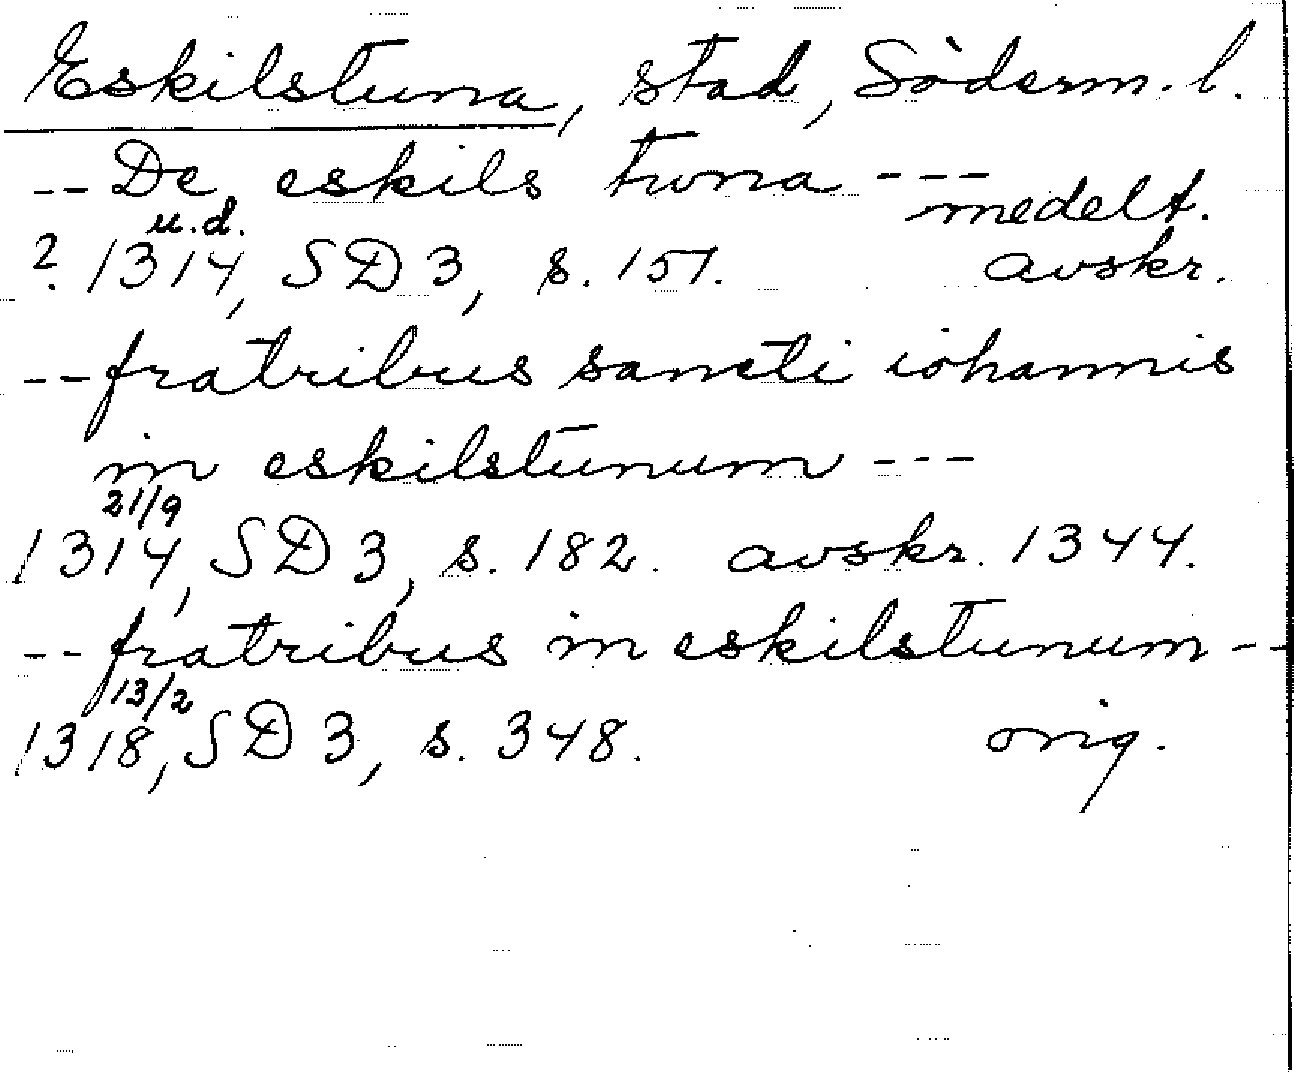 Eskilstuna, stad, Söderm. l.
-- De eskils twna ---
medelt.
u.d.
? 1314, SD 3, s. 151. avskr.
-- fratribus sancti iohannis
in eskilstunum ---
21/9
1314, SD 3, s. 182. avskr. 1344.
-- fratribus in eskilstunum --
13/2
1318, SD 3, s. 348. orig.